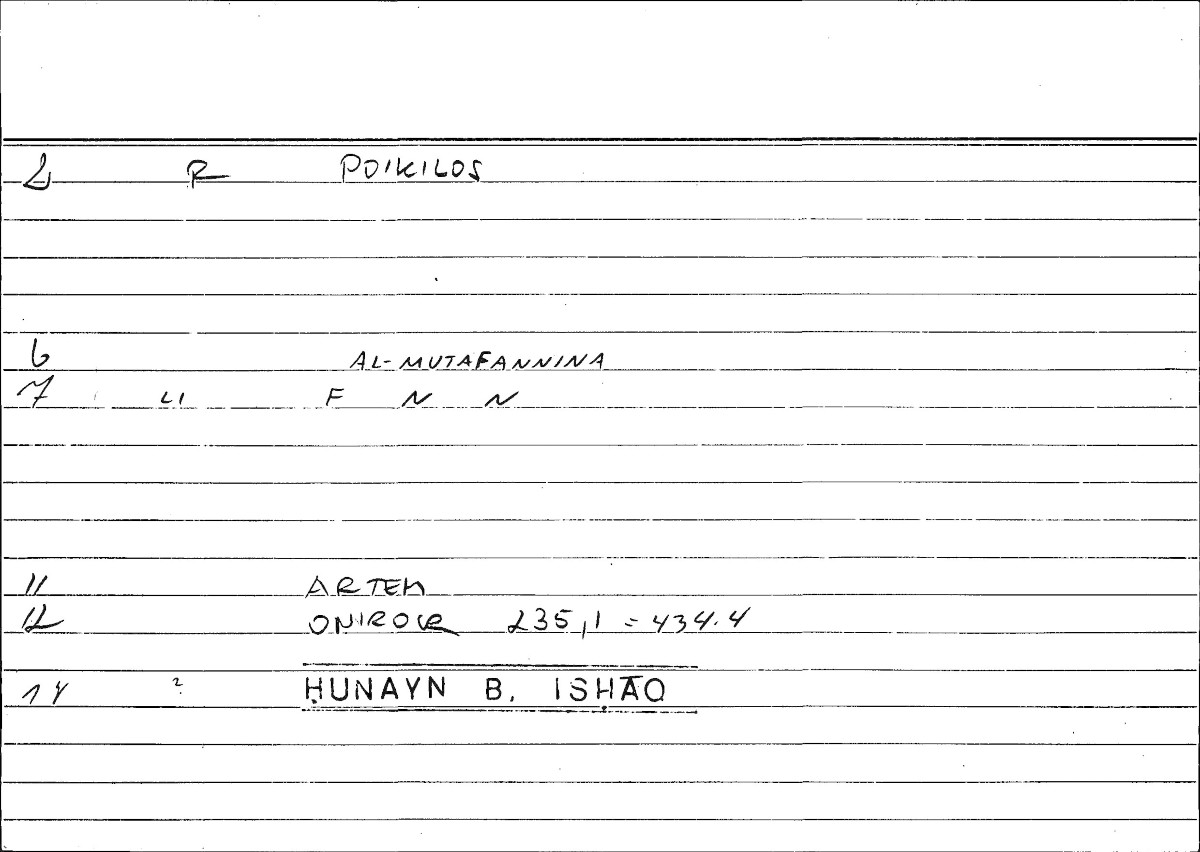 2 R POIKILOS
6 AL-MUTAFANNINA
7 LI F N N
11 ARTEM
12 ONIROCR 235,1 = 434.4
14 2 ḤUNAYN B. ISḤĀQ